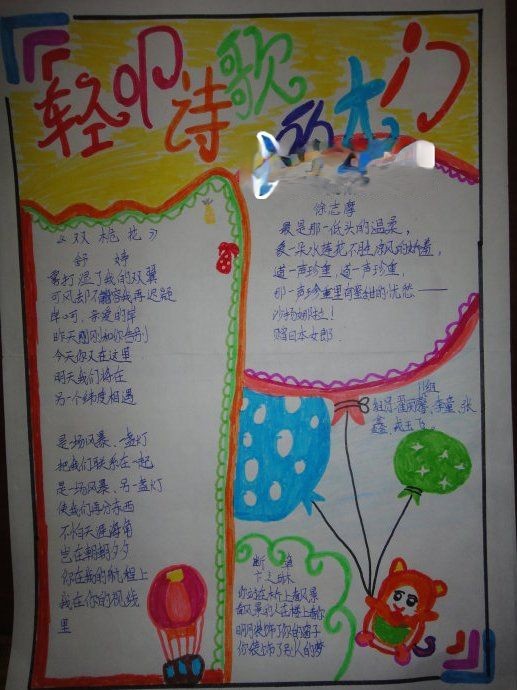 轻叩诗歌的大门
《双桅船》
舒婷
雾打湿了我的双翼
可风却不容我再迟疑
岸呵,亲爱的岸
昨天刚刚和你告别
今天你又在这里
明天我们将在
另一个纬度相遇
是一场风暴、一盏灯
把我们联系在一起
是一场风暴、另一盏灯
使我们再分东西
不怕天涯海角
岂在朝朝夕夕
你在我的航程上
我在你的视线
里
徐志摩
最是那一低头的温柔,
象一朵水莲花不胜凉风的娇羞,
道一声珍重,道一声珍重,
那一声珍重里有蜜甜的忧愁——
沙扬娜拉!
赠日本女郎
组
组员:翟丽馨、李童、张
鑫、戎玉飞
断章
卞之琳
你站在桥上看风景
看风景的人在楼上看你
明月装饰了你的窗子
你装饰了别人的梦